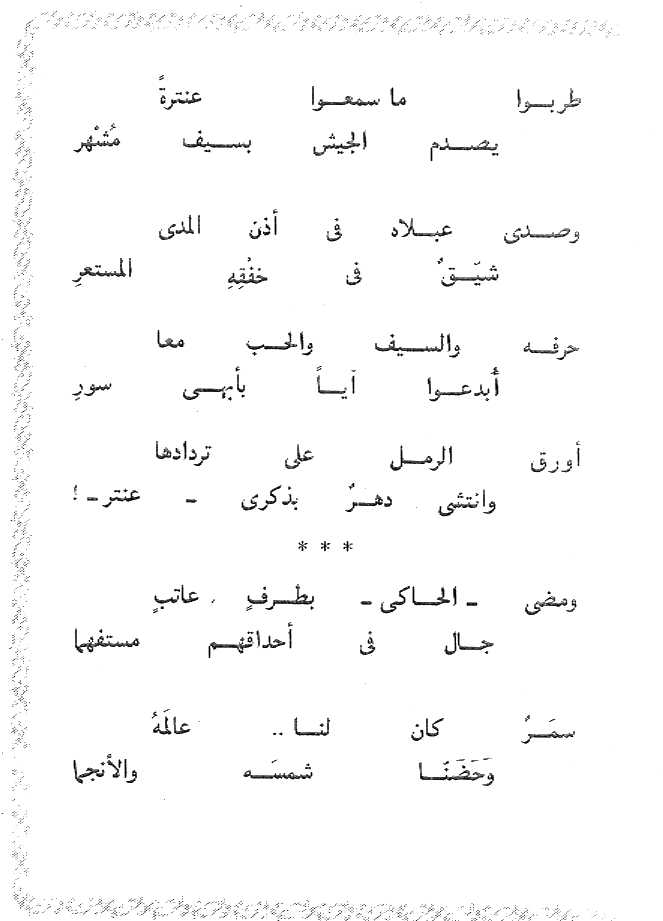 طربوا ما سمعوا عنترةً
يصدم الجيش بسيف مُشْهر
وصدى عبلاه فى أذن المدى
شيّقٌ فى خفْقِهِ المستعرِ
حرفه والسيف والحب معا
أبدعوا آياً بأبهى سورِ
أورق الرمل على تردادها
وانتشى دهرٌ بذكرى - عنتر - !
* * *
ومضى - الحاكى - بطرفٍ عاتبٍ
جال فى أحداقهم مستفهما
سمَرٌ كان لنا .. عالَمهُ
وَحَضَنَّا شمسَه والأنجما